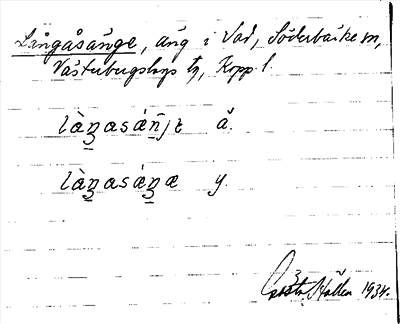 Långåsänge, äng i Vad, Söderbärke sn,
Västerbergslags tg, Kopp. l.
làŋasáñjɛ ä.
làŋasáŋæ y.
Gösta Hallen 1934.